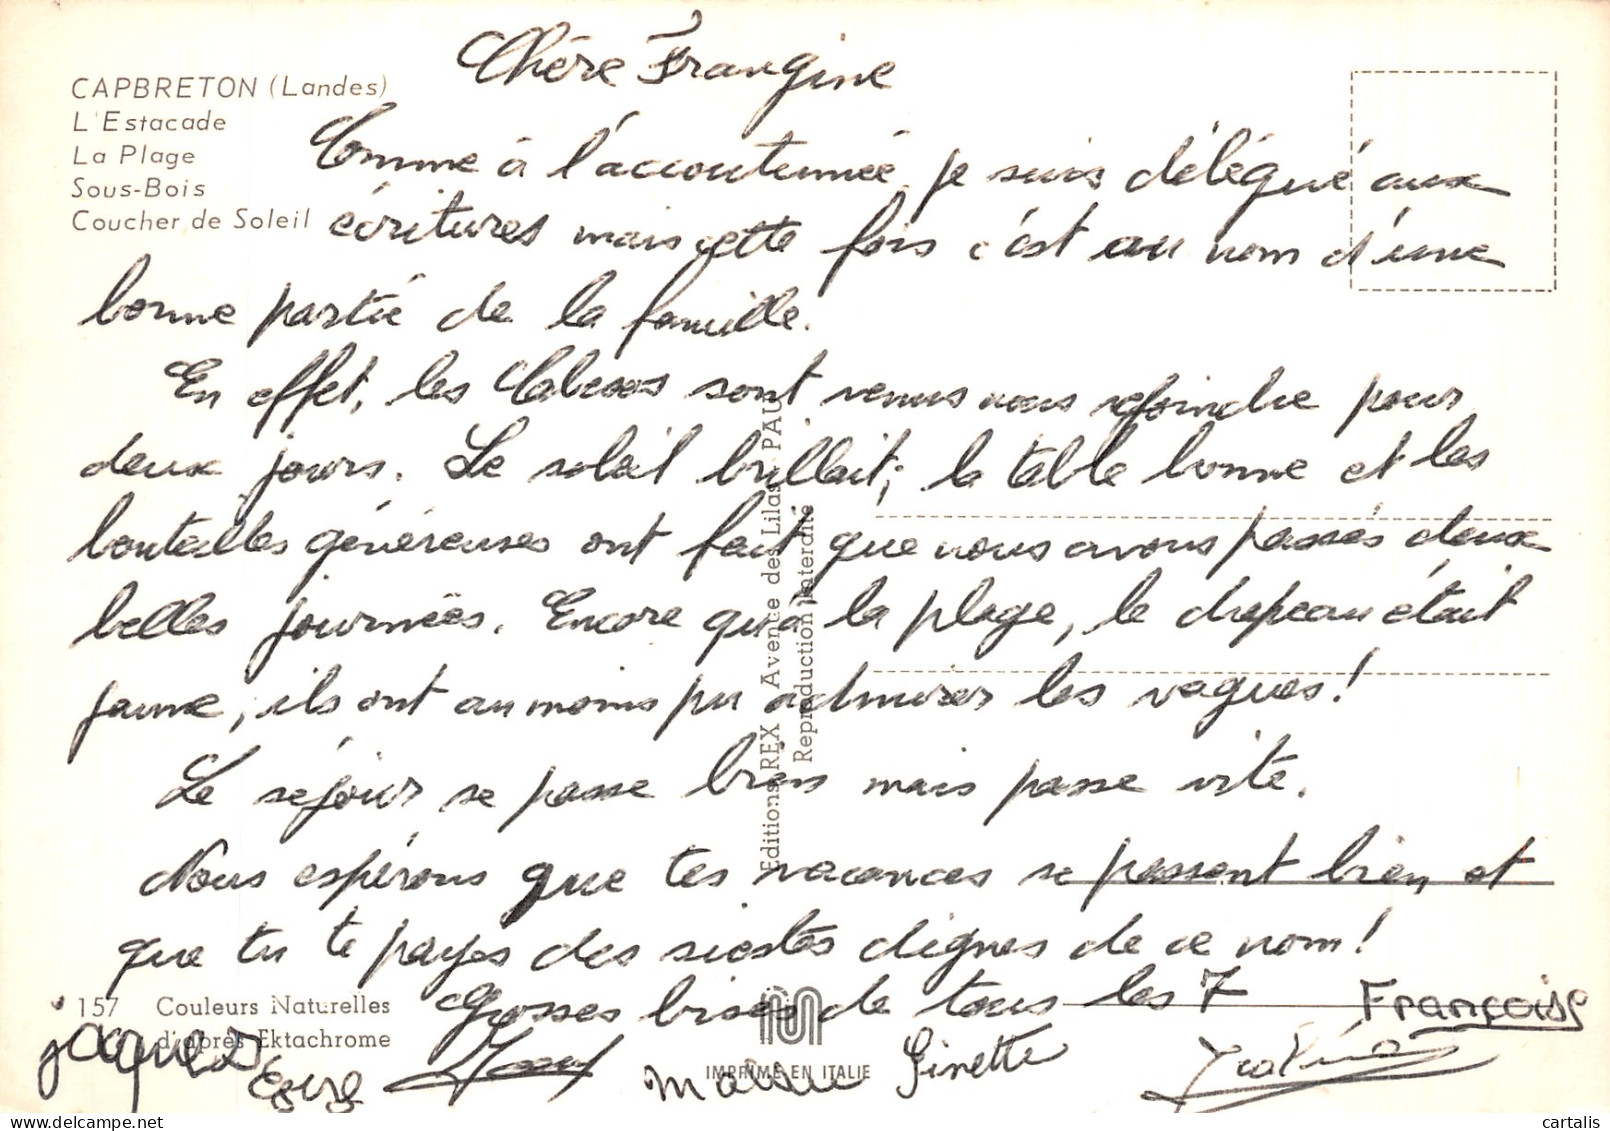 CAPBRETON (Landes)
L'Estacade
La Plage
Sous-Bois
Coucher de Soleil
Chère Frangine
Comme à l'accoutumée, je suis délégué aux
écritures mais cette fois c'est au nom d'une
bonne partie de la famille.
En effet, les sont venus nous rejoindre pour
deux jours. Le soleil brillait, la table bonne et les
bouteilles généreuses ont fait que nous avons passés deux
belles journées. Encore qu'à la plage, le drapeau était
jaune, ils ont au moins pu admirer les vagues!
Le séjour se passe bien mais passe vite.
Nous espérons que tes vacances se passent bien et
que tu te payes des siestes dignes de ce nom!
Grosses bises de tous les 7
Françoise
jacques
Ginette
Editions REX Avenue des Lilas - PAU
Reproduction Interdite
157 Couleurs Naturelles
d'après Ektachrome
IMPRIMÉ EN ITALIE
cartalis